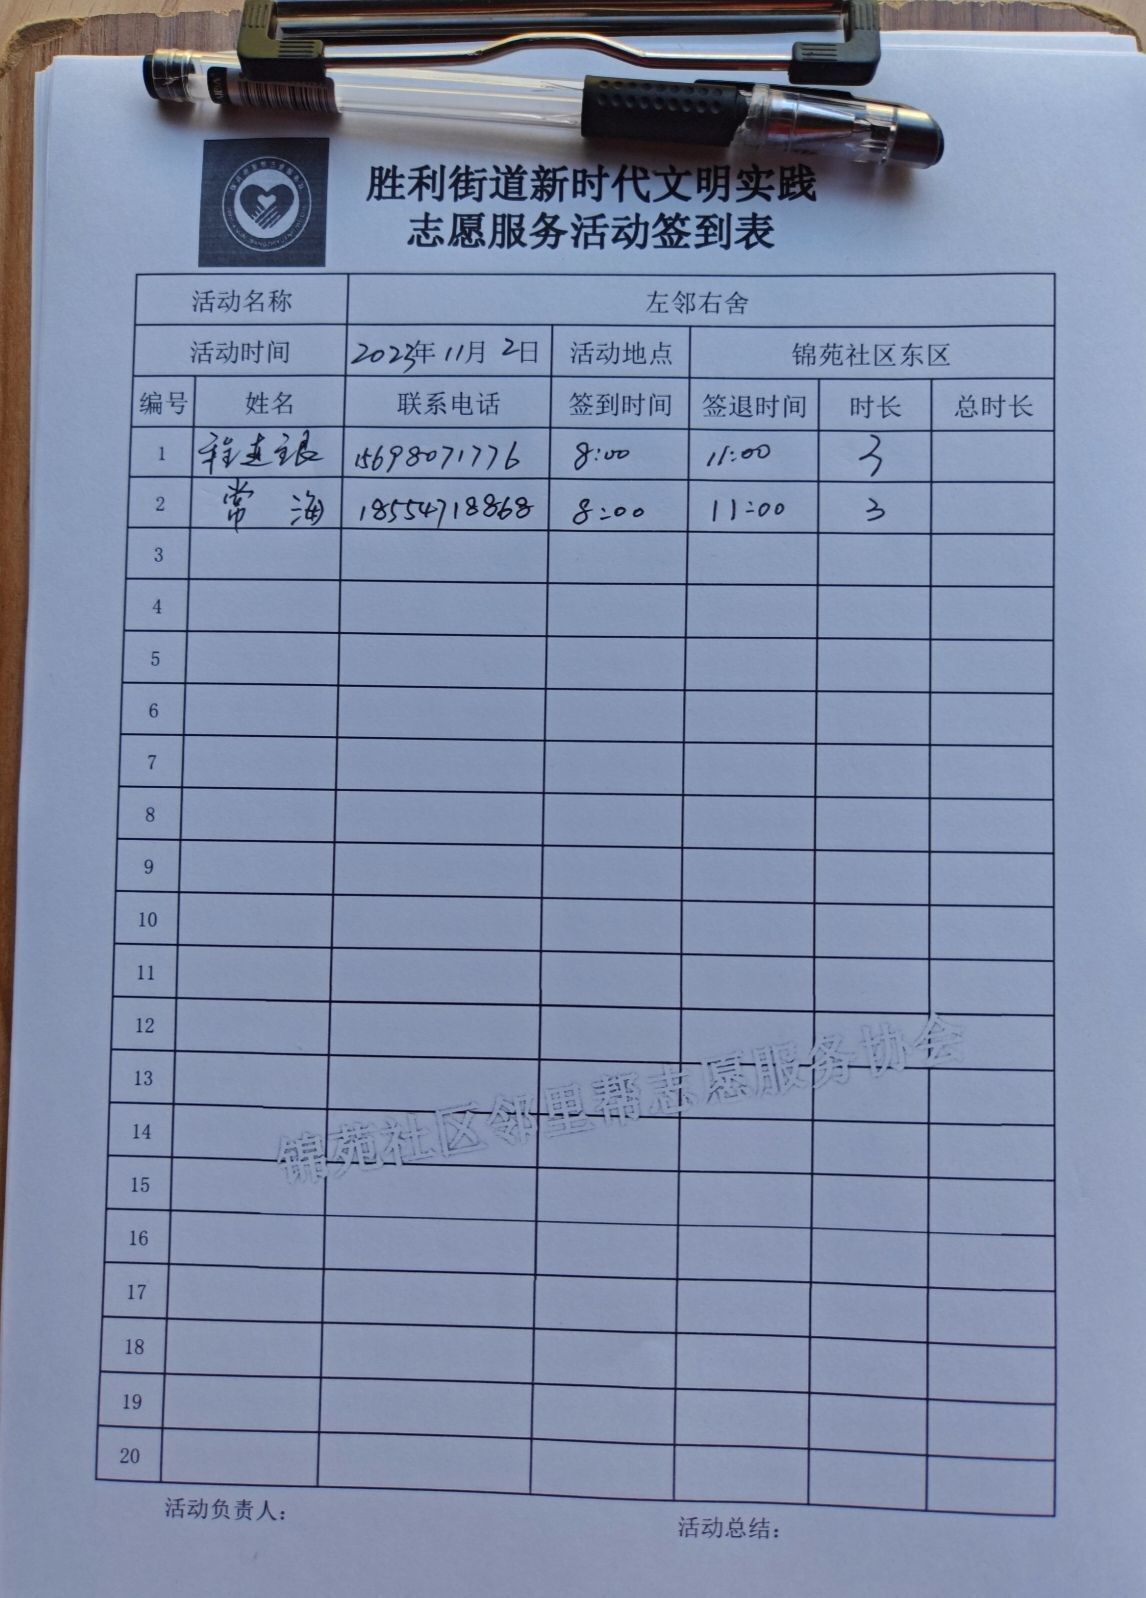 胜利街道新时代文明实践
志愿服务活动签到表
活动名称 左邻右舍
活动时间 2023年 11月 2日 活动地点 锦苑社区东区
编号 姓名 联系电话 签到时间 签退时间 时长 总时长
1 程连银 15698071776 8:00 11:00 3
2 常海 18554718868 8:00 11:00 3
3
4
5
6
7
8
9
10
11
12
13
14
15
16
17
18
19
20
锦苑社区邻里帮志愿服务协会
活动负责人:
活动总结: